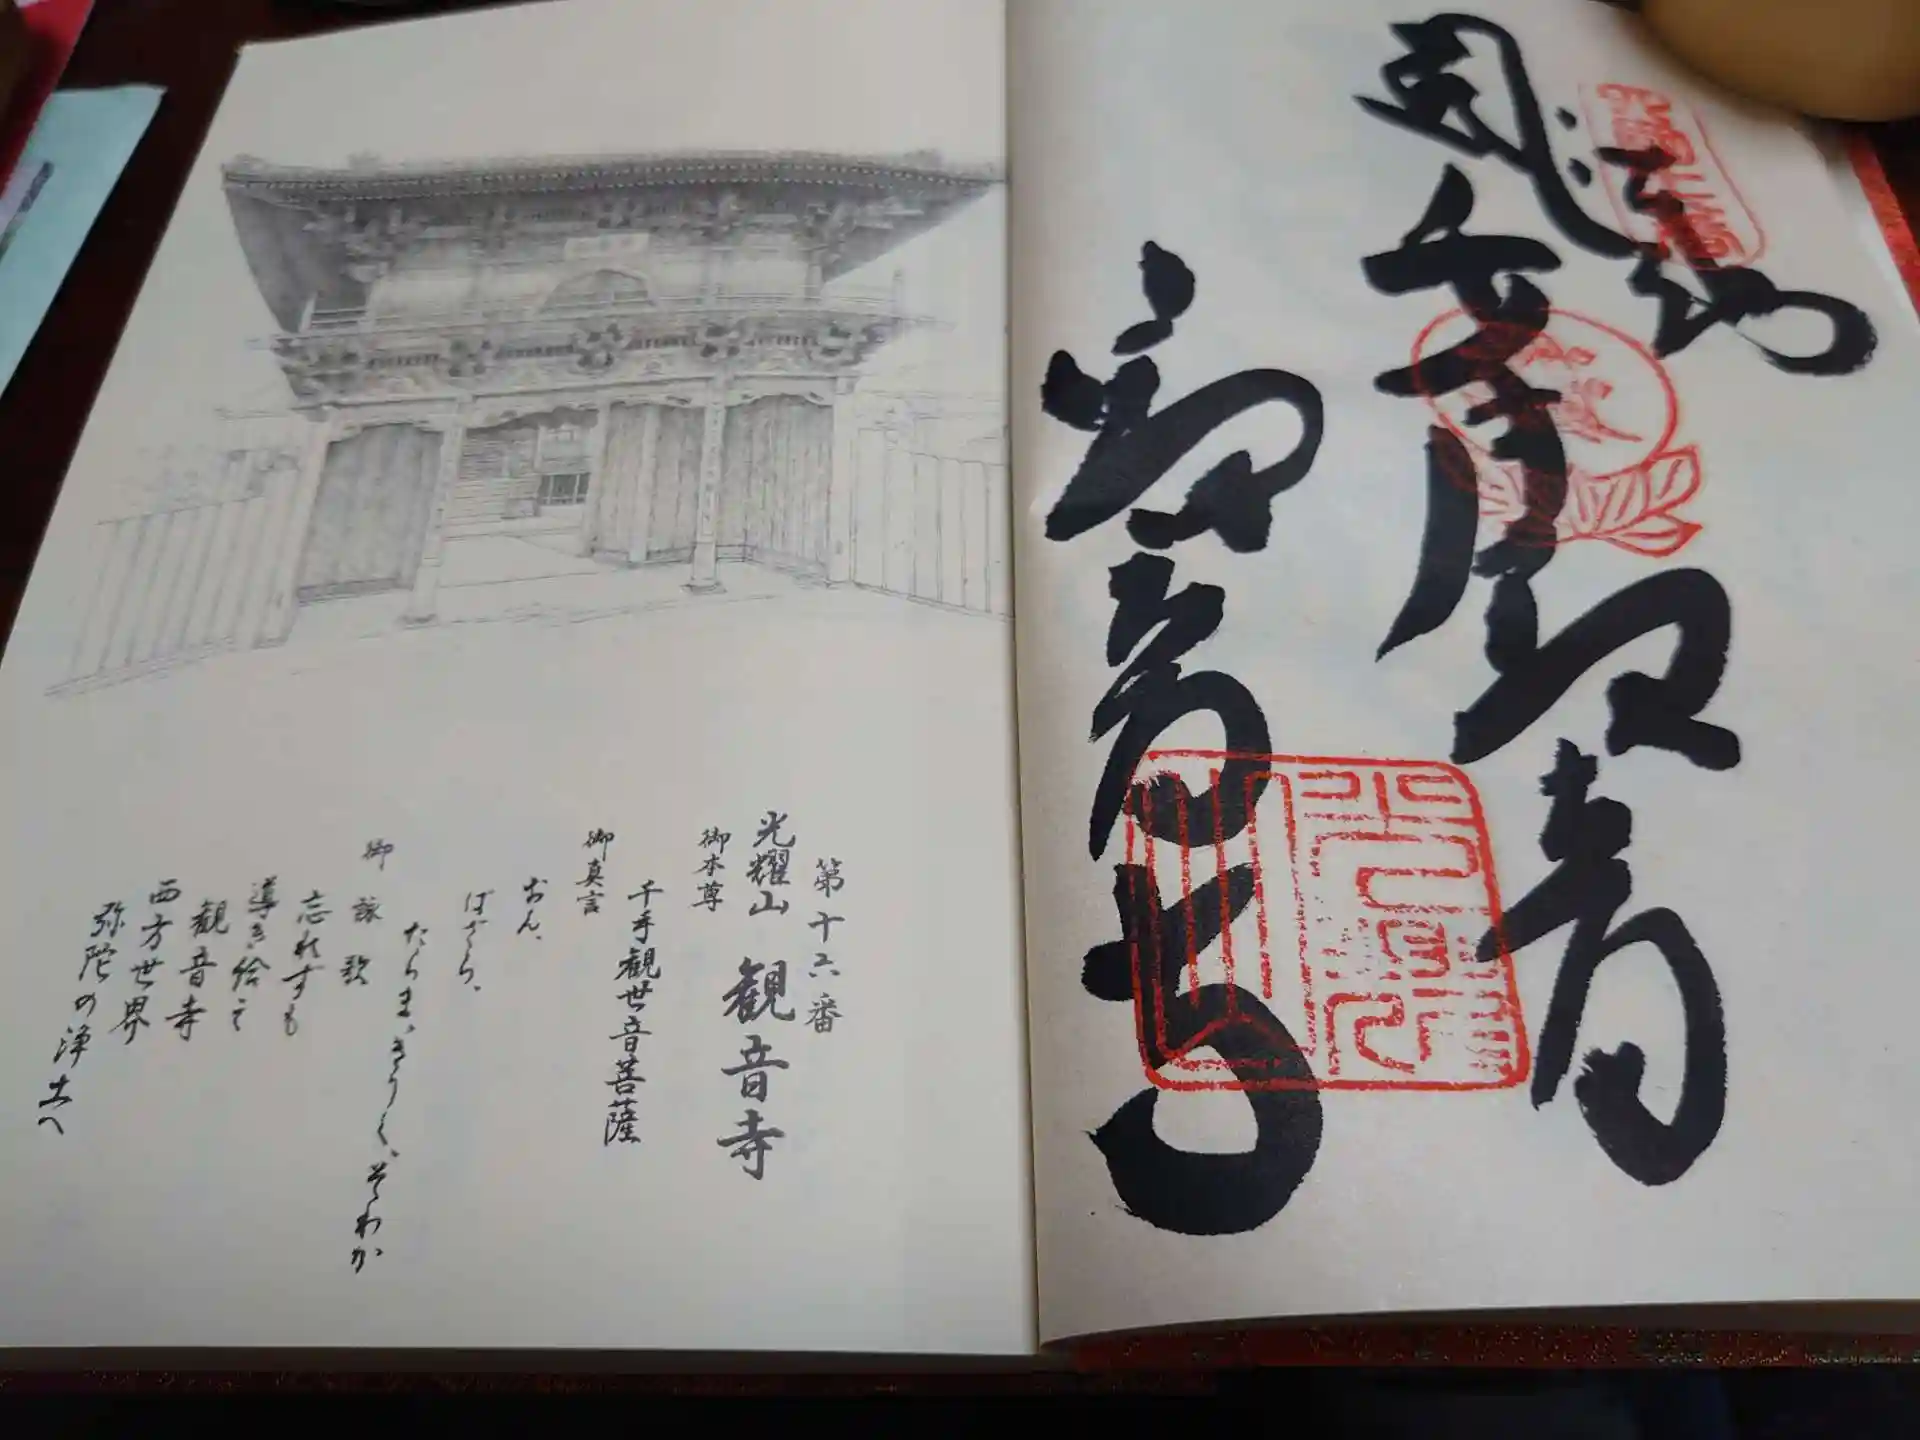 千手観音
観音寺
第十六番
光耀山 観音寺
御本尊
千手観世音菩薩
御真言
おん、
ばざら、
たらま、きりく、そわか
御詠歌
忘れすも
導き給へ
観音寺
西方世界
弥陀の浄土へ